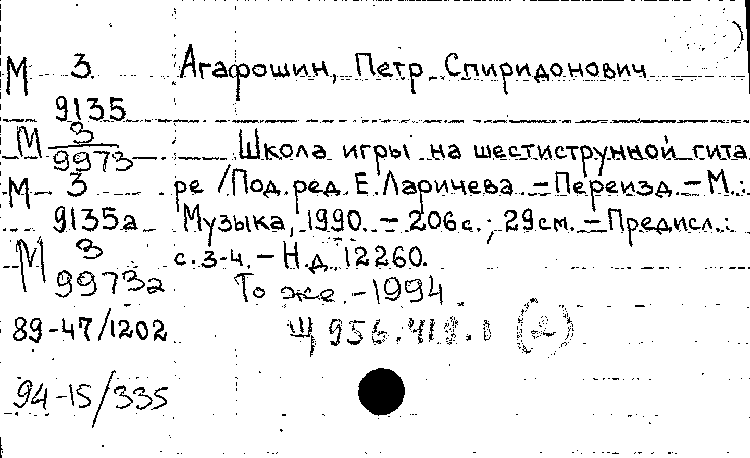 М 3 Агафошин, Петр Спиридонович
9135
М 3 Школа игры на шестиструнной гита
9973
М 3 ре /Под ред. Е. Ларичева. – Переизд. – М.:
9135а Музыка, 1990. – 206с.; 29см. – Предисл.:
М 3 с. 3-4. – Н.д. 12260.
9973а То же. – 1994
89-47/1202 Щ 956.418.1 (2)
94-15/335